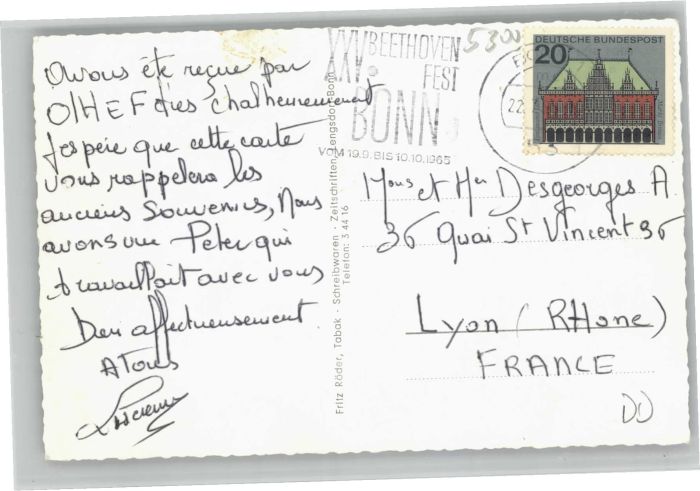 Avons été reçue par
OlHEF dies chalheureusement
J'espère que cette carte
vous rappelera les
anciens Souvenirs, Nous
avons vu Peter qui
travaillait avec vous
Bien affectueusement
A Tous
XXV. BEETHOVEN
FEST
BONN
VOM 19.9. BIS 10.10.1965
5300
DEUTSCHE BUNDESPOST
20
Fritz Röder, Tabak - Schreibwaren - Zeitschriften, Lengsdorf-Bonn
Telefon: 3 44 16
Mous et Mer Desgeorges A
36 Quai St Vincent 36
Lyon (RHone)
FRANCE
DD